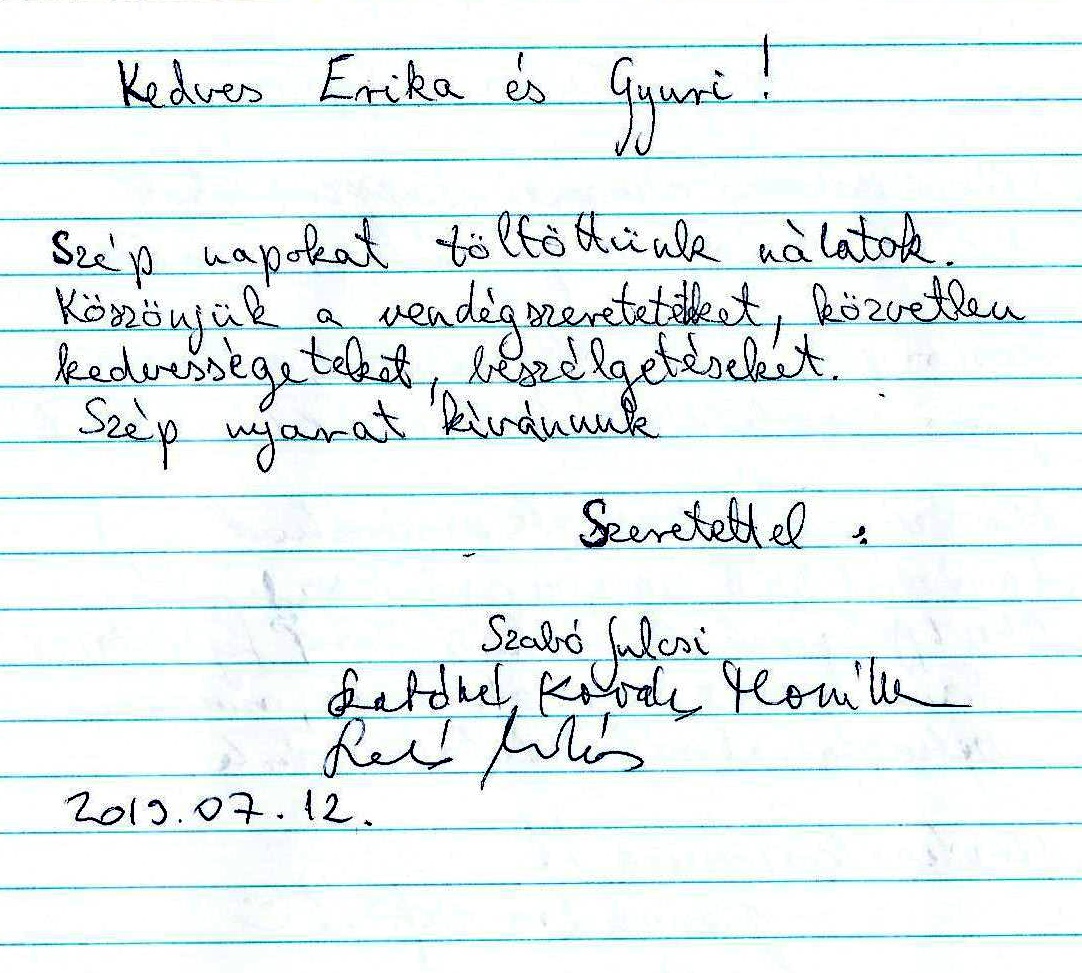 Kedves Erika és Gyuri!
Szép napokat töltöttünk nálatok.
Köszönjük a vendégszereteteket, közvetlen
kedvességeteket, beszélgetéseket.
Szép nyarat kívánunk
Szeretettel:
Szabó Julcsi
Kovács Monika
Miklós
2019.07.12.